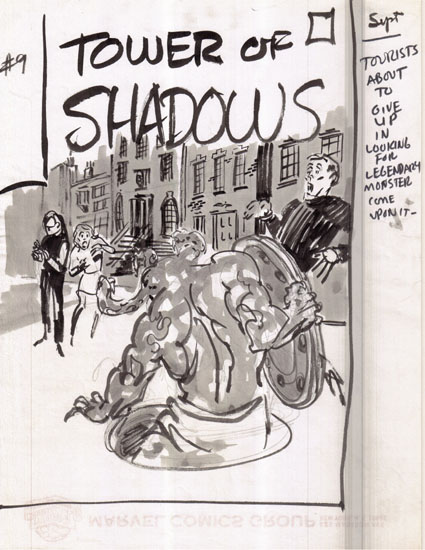 #9
TOWER OF
SHADOWS
Sept
TOURISTS
ABOUT
TO
GIVE
UP
IN
LOOKING
FOR
LEGENDARY
MONSTER
COME
UPON IT-
MARVEL COMICS GROUP